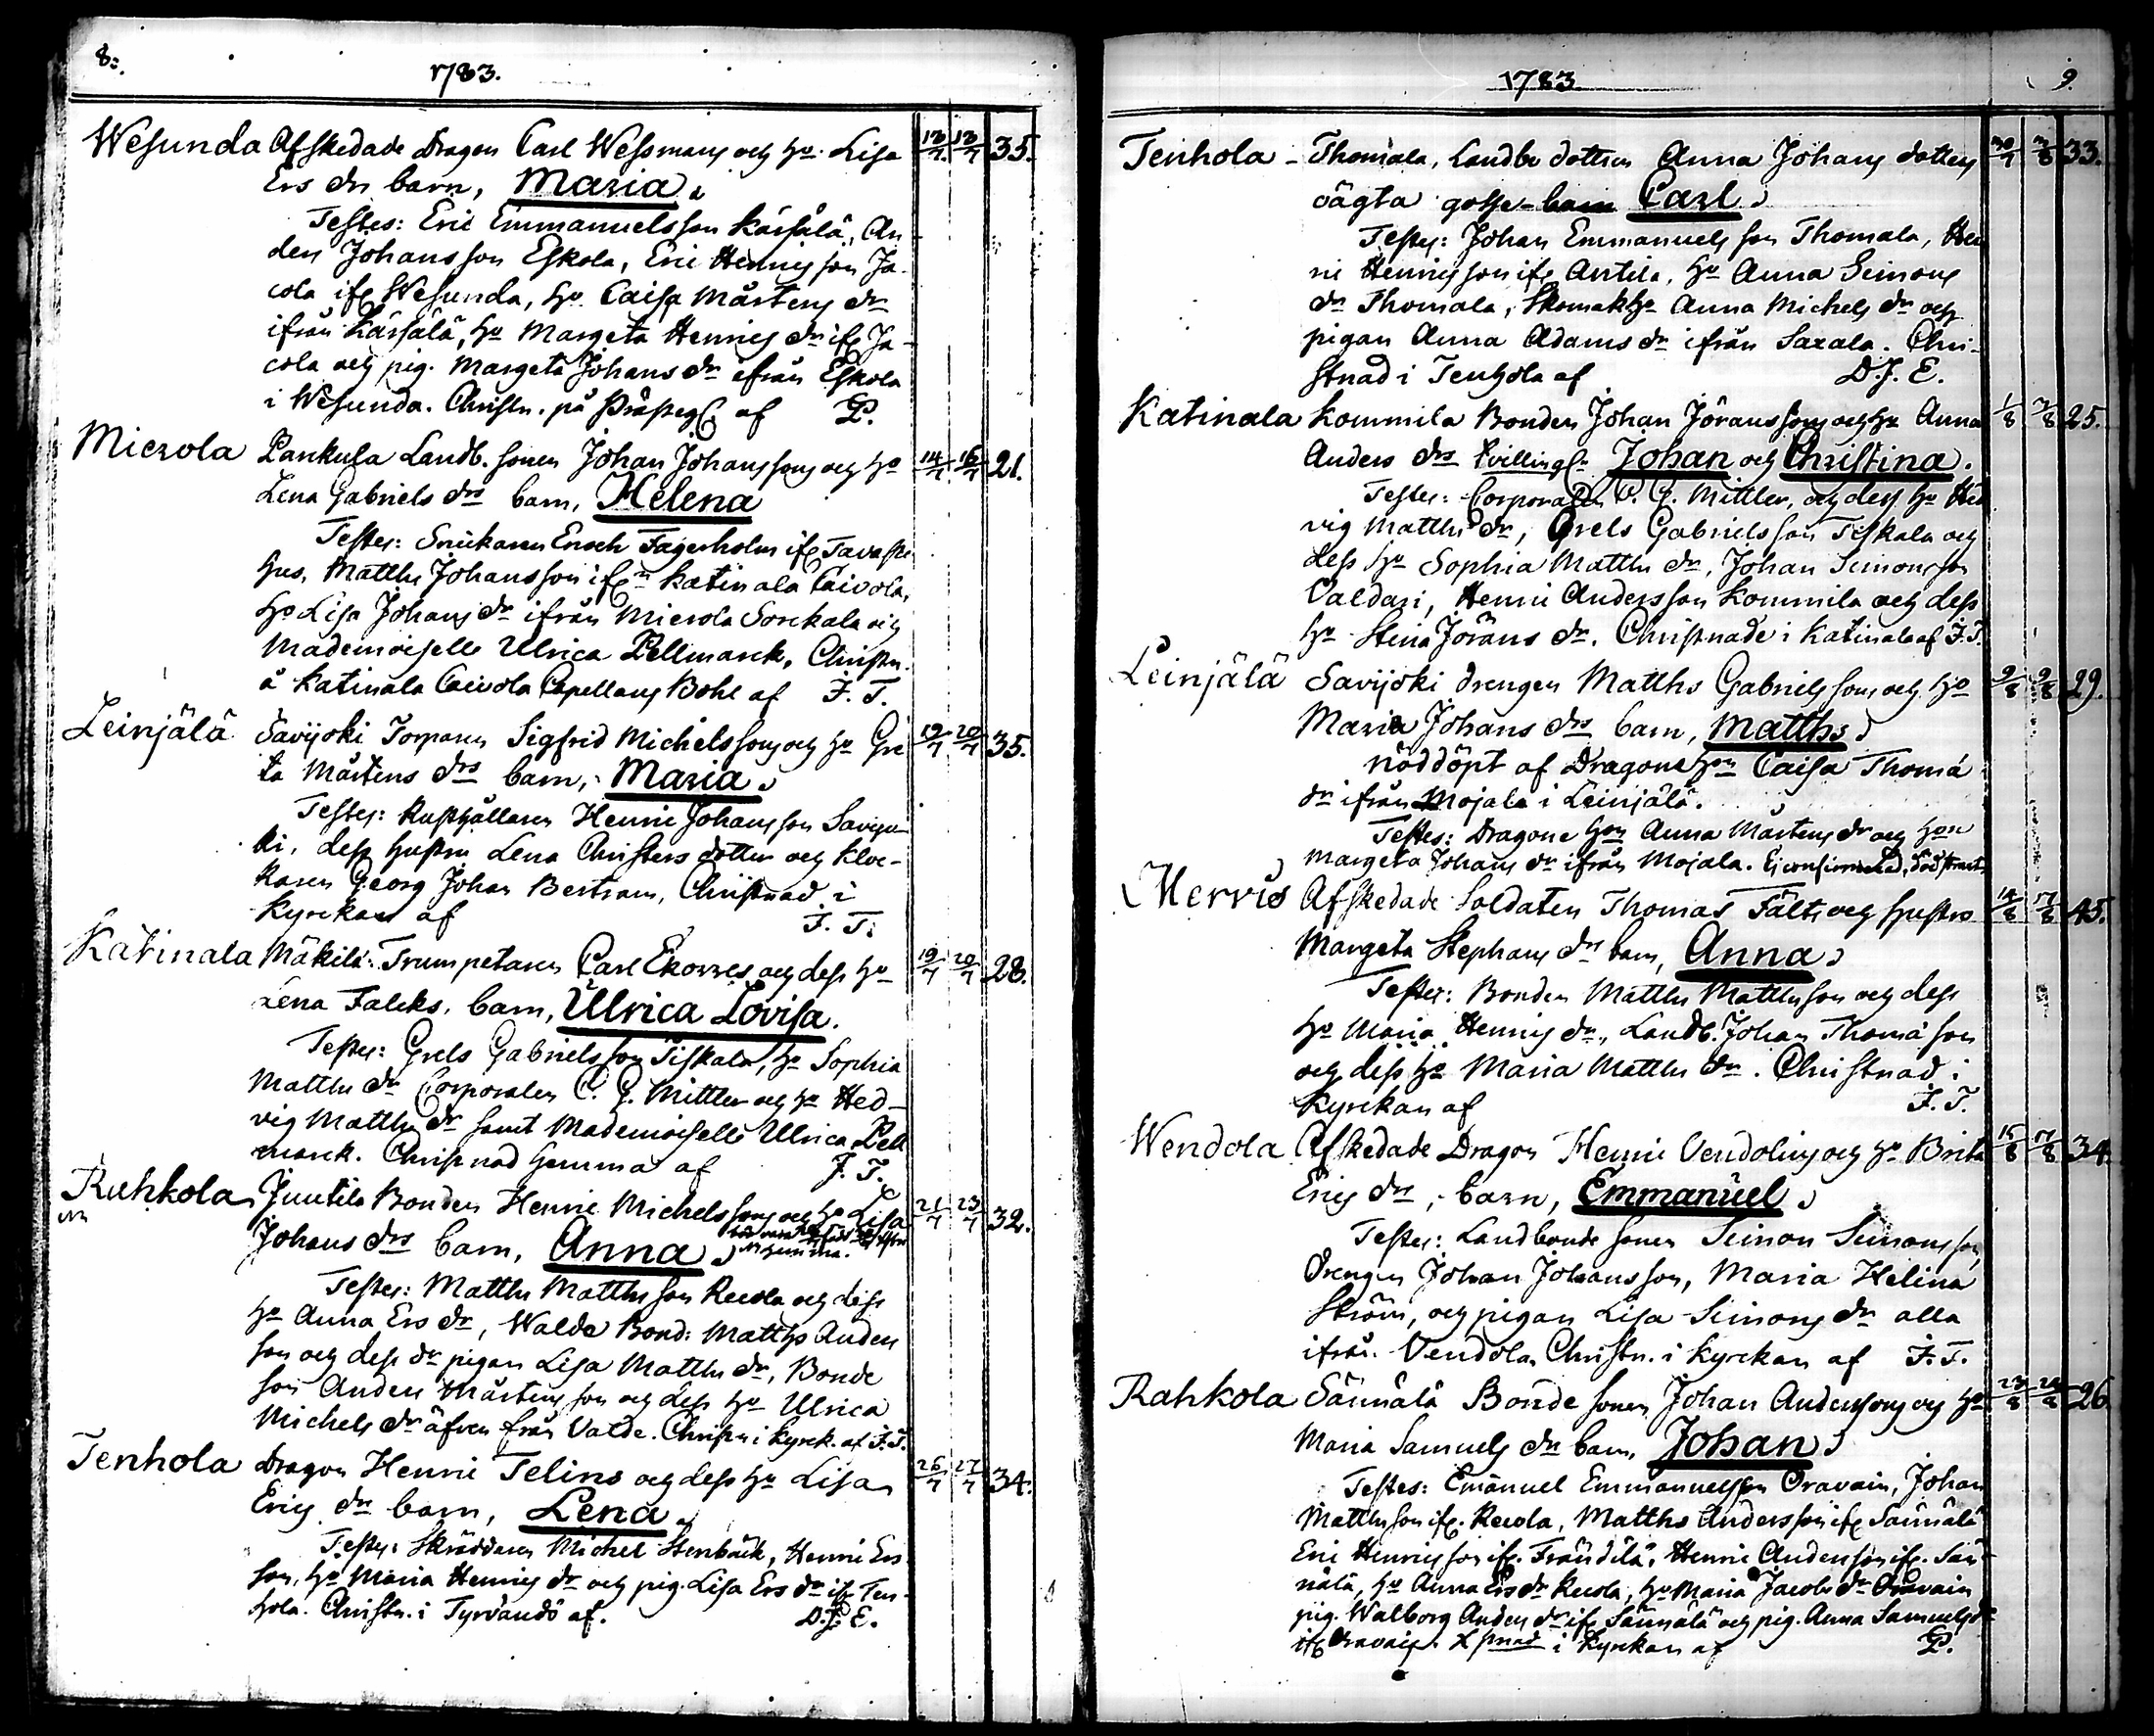 8:.
1783.
Wesunda Afskedade Dragon Carl Wessmans och hu. Lisa 13/7 13/7 35.
Ers drs barn, Maria.
Testes: Eric Emmanuelsson Kärsälä, An
ders Johansson Eskola, Eric Henricsson Ja-
cola ifr. Wesunda, hu. Caisa Mårtens dr
ifrån Kärsälä, hu Margeta Henrics dr ifr. Ja-
cola och pig. Margeta Johans dr ifrån Eskola
i Wesunda. Christn. på Prästeg. af P.
Mierola Pankula Landb. sonen Johan Johanssons och hu 14/7 16/7 21.
Lena Gabriels drs barn, Helena
Testes: Snickaren Enoch Fagerholm ifr. Tavaste
hus, Matths Johansson ifrn Katinala Caivola,
hu Lisa Johans dr ifrån Mierola Sorckala och
Mademoiselle Ulrica Pellmarck, Christn.
å Katinala Caivola Capellans Bohl af J. T.
Leinjälä Savijoki Torparen Sigfrid Michelssons och hu Gre 19/7 20/7 35.
ta Mårtens drs barn, Maria.
Testes: Rusthållaren Henric Johansson Savijo-
ki, dess hustru Lena Christers dotter och Kloc-
karen Georg Johan Bertram, Christnad i
Kyrckan af J. T.
Katinala Mäkilä Trumpetaren Carl Ekorres och dess hu 19/7 20/7 28.
Lena Falcks, barn, Ulrica Lovisa.
Testes: Grels Gabrielsson Tiskala, hu Sophia
Matths dr Corporalen C. G. Mittler och hu Hed-
vig Matths dr samt Mademoiselle Ulrica Pell
marck. Christnad hemma af J. T.
Rahkola Juutila Bonden Henric Michelssons och hu Lisa 21/7 23/7 32.
Johans drs barn, Anna
hemma.
Testes: Matths Matthsson Recola och dess
hu Anna Ers dr, Walde Bond: Matths Anders
son och dess dr pigan Lisa Matths dr, Bonde
son Anders Mårtensson och dess hu Ulrica
Michels dr äfven från Valde. Christn i Kyrck. af J. T.
Tenhola Dragon Henric Telins och dess hu Lisa 26/7 27/7 34.
Erics dr barn, Lena
Testes: Skräddaren Michel Stenbäck, Henric Ers
son, hu Maria Henrics dr och pig. Lisa Ers dr ifr Ten-
hola. Christn. i Tyrvändö af. D.J. E.
1783 9.
Tenhola Thomala, Landbo dottren Anna Johans dotters 30/7 3/8 33.
oägta gosse-barn Carl
Testes: Johan Emmanuels son Thomala, Hen
ric Henricsson ifr Antila, hu Anna Simons
dr Thomala, Skomakhu Anna Michels dr och
pigan Anna Adams dr ifrån Saxala. Chri-
stnad i Tenhola af D.J. E.
Katinala Kommila Bonden Johan Jöranssons och hu Anna 1/8 3/8 25.
Anders drs Tvilling Johan och Christina.
Testes: Corporalen C. G. Mittler, och dess hu Hed
vig Matths dr, Grels Gabrielsson Tiskala och
dess hu Sophia Matths dr, Johan Simonsson
Valdari, Henric Andersson Kommila och dess
hu Stina Jörans dr. Christnade i Katinala af J. T.
Leinjälä Savijoki drengen Matths Gabrielssons och hu 9/8 9/8 29.
Maria Johans drs barn, Matths
nöddöpt af Dragone hun Caisa Thomæ
dr ifrån Mojala i Leinjälä.
Testes: Dragone hun Anna Mårtens dr och hun
Margeta Johans dr ifrån Mojala. Ej confirmerad,
Merrvis Afskedade Soldaten Thomas Fälts och hustru 14/8 17/8 45.
Margeta Stephans drs barn, Anna
Testes: Bonden Matths Matthsson och dess
hu Maria Henrics dr, Landb. Johan Thomæ son
och dess hu Maria Matths dr. Christnad i
Kyrckan af J. T.
Wendola Afskedade Dragon Henric Vendolins och hu Brita 15/8 17/8 34.
Erics drs, barn, Emmanuel
Testes: Landbonde sonen Simon Simonsson,
Drengen Johan Johansson, Maria Helina
Ström, och pigan Lisa Simons dr alla
ifrån Vendola, Christn. i Kyrckan af J. T.
Rahkola Sännälä Bonde sonen Johan Anderssons och hu 23/8 24/8 26
Maria Samuels drs barn, Johan
Testes: Emanuel Emmanuelsson Oravain, Johan
Matthsson ifr. Recola, Matths Andersson ifr Sännälä
Eric Henricsson ifr. Frändilä, Henric Andersson ifr. Sän-
nälä, hu Anna Ers dr Recola, hu Maria Jacobs dr Oravain
pig. Walborg Anders dr ifr Sännälä och pig. Anna Samuels dr
ifr Oravain. Xstnad i Kyrckan af P.